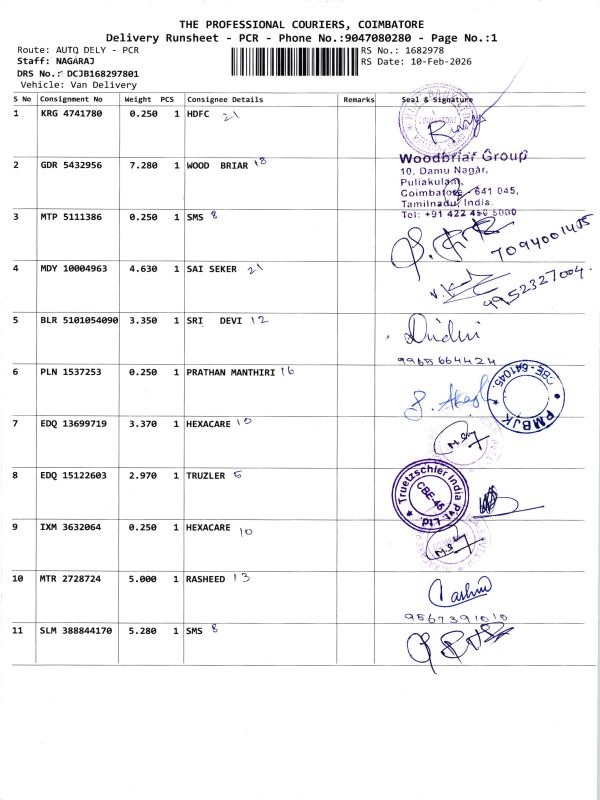 THE PROFESSIONAL COURIERS, COIMBATORE
Delivery Runsheet - PCR - Phone No.:9047080280 - Page No.:1
Route: AUTO DELY - PCR RS No.: 1682978
Staff: NAGARAJ RS Date: 10-Feb-2026
DRS No.: DCJB168297801
Vehicle: Van Delivery
S No Consignment No Weight PCS Consignee Details Remarks Seal & Signature
1 KRG 4741780 0.250 1 HDFC 21
2 GDR 5432956 7.280 1 WOOD BRIAR 18
Woodbriar Group
10, Damu Nagar,
Puliakulam,
Coimbatore - 641 045,
Tamilnadu, India.
Tel: +91 422 450 5000
3 MTP 5111386 0.250 1 SMS 8
7094001405
4 MDY 10004963 4.630 1 SAI SEKER 21
9952327004.
5 BLR 5101054090 3.350 1 SRI DEVI 12
9965664424
6 PLN 1537253 0.250 1 PRATHAN MANTHIRI 16
PMBJK
CBE-641045.
7 EDQ 13699719 3.370 1 HEXACARE 10
8 EDQ 15122603 2.970 1 TRUZLER 5
Truetzschler India Pvt. Ltd.
CBE-45
9 IXM 3632064 0.250 1 HEXACARE 10
10 MTR 2728724 5.000 1 RASHEED 13
9567391010
11 SLM 388844170 5.280 1 SMS 8